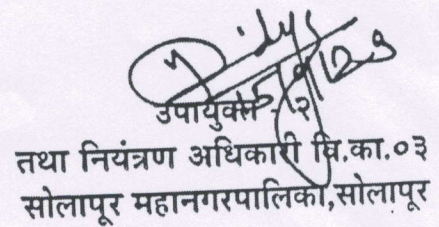 उपायुक्त - २
तथा नियंत्रण अधिकारी वि.का.०३
सोलापूर महानगरपालिका,सोलापूर